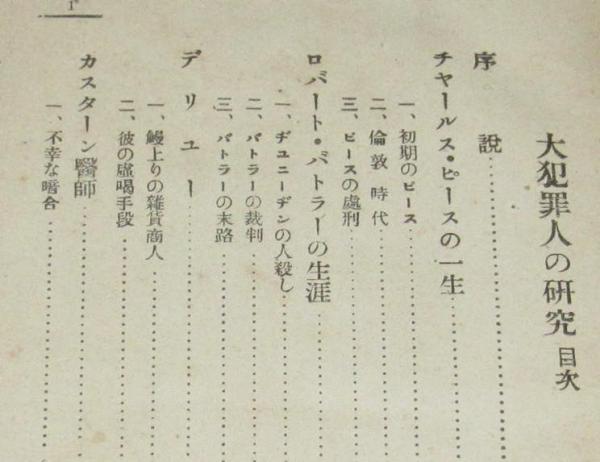 大犯罪人の研究 目次
序說
チャールス・ピースの一生
一、初期のピース
二、倫敦時代
三、ピースの處刑
ロバート・バトラーの生涯
一、ヂユニーヂンの人殺し
二、バトラーの裁判
三、バトラーの末路
デリユー
一、鰻上りの雜貨商人
二、彼の虛喝手段
カスターン醫師
一、不幸な暗合
1